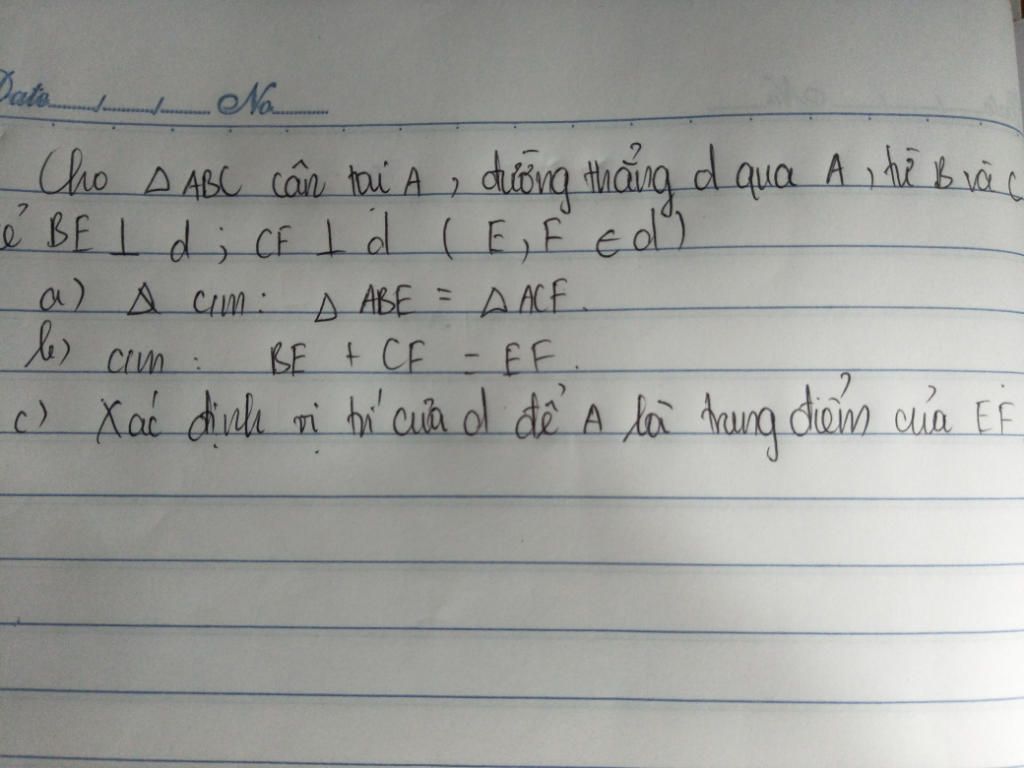 Date...../...../..... No..........
Cho Δ ABC cân tại A, đường thẳng d qua A, từ B và C
ẻ BE ⊥ d ; CF ⊥ d ( E, F ∈ d )
a) Δ cm : Δ ABE = Δ ACF.
b) cm : BE + CF = EF.
c) Xác định vị trí của d để A là trung điểm của EF